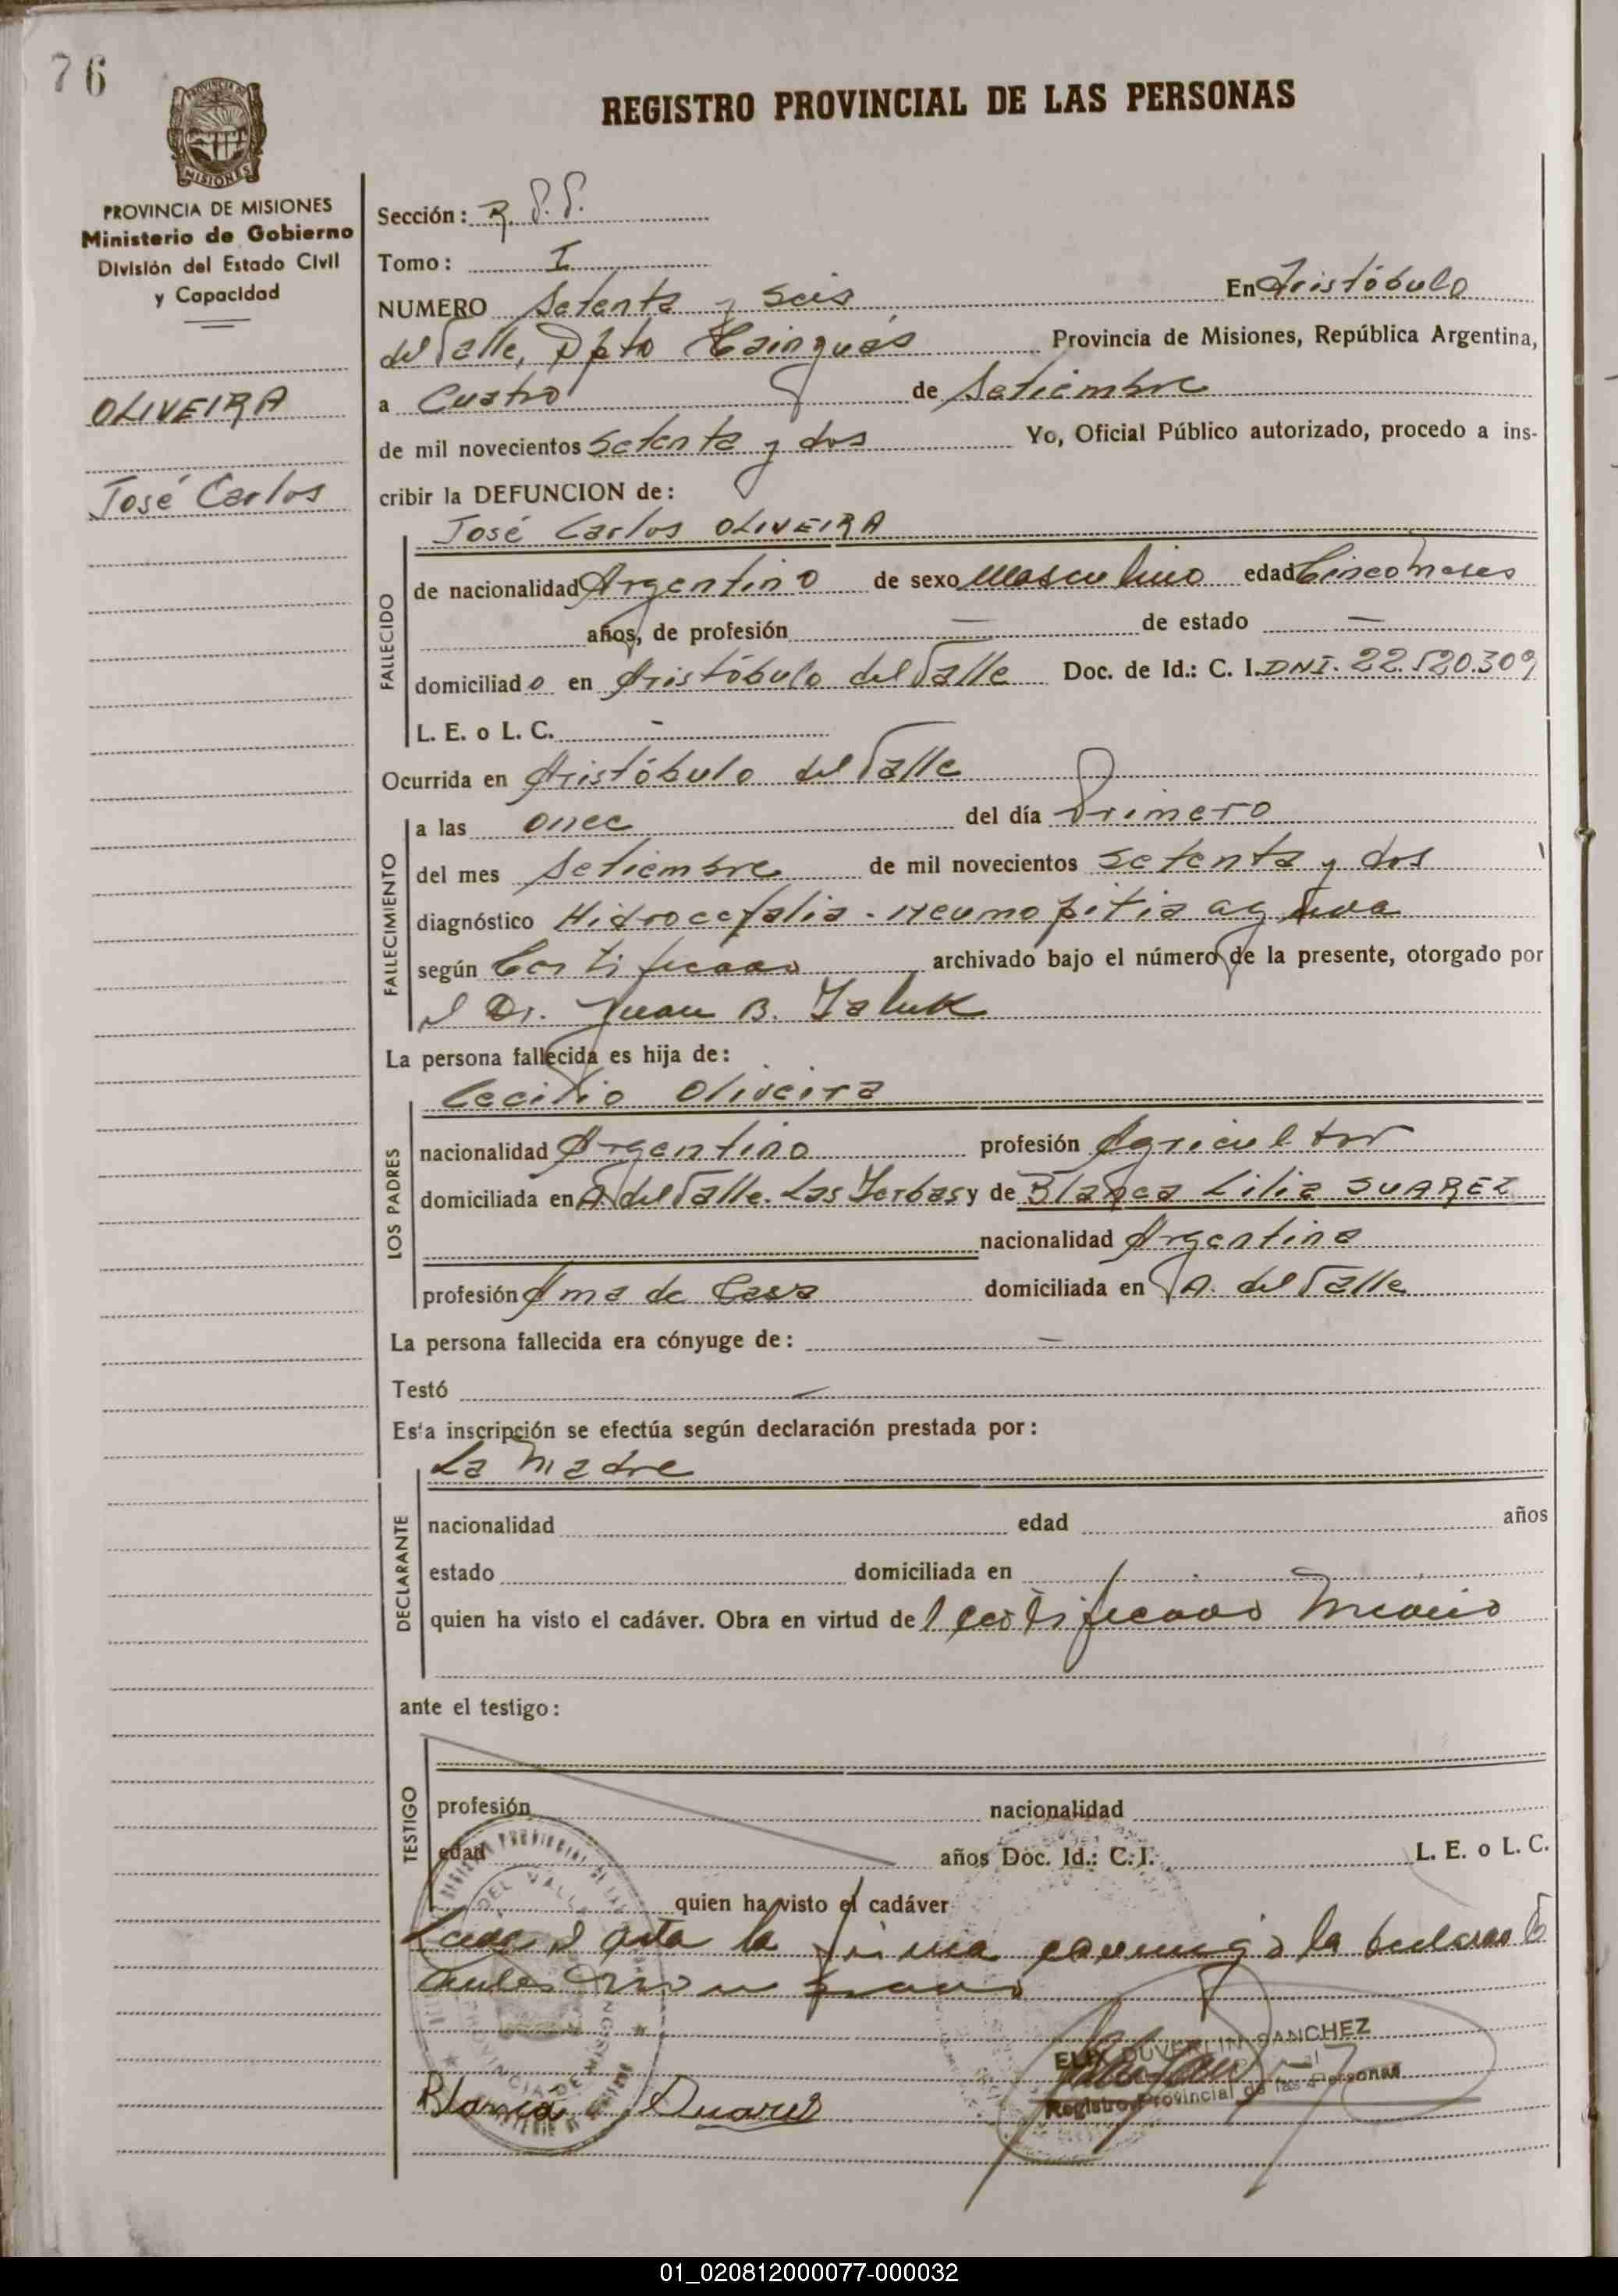 76
REGISTRO PROVINCIAL DE LAS PERSONAS
PROVINCIA DE
MISIONES
PROVINCIA DE MISIONES
Ministerio de Gobierno
División del Estado Civil
y Capacidad
OLIVEIRA
José Carlos
Sección:
Tomo: I
NUMERO Setenta y Seis En Aristóbulo
del Valle, Dpto Cainguás Provincia de Misiones, República Argentina,
a Cuatro de Setiembre
de mil novecientos Setenta y dos Yo, Oficial Público autorizado, procedo a ins-
cribir la DEFUNCION de:
José Carlos OLIVEIRA
FALLECIDO
de nacionalidad Argentino de sexo Masculino edad Cinco meses
años, de profesión — de estado —
domiciliado en Aristóbulo del Valle Doc. de Id.: C. I. DNI. 22.520.309
L. E. o L. C. -
Ocurrida en Aristóbulo del Valle
FALLECIMIENTO
a las once del día Primero
del mes Setiembre de mil novecientos Setenta y dos
diagnóstico Hidrocefalia - neumopitia aguda
según Certificado archivado bajo el número de la presente, otorgado por
el Dr. Juan B.
La persona fallecida es hija de:
Cecilio Oliveira
LOS PADRES
nacionalidad Argentino profesión Agricultor
domiciliada en A. del Valle. Las Yerbas y de Blanca Lilia SUAREZ
nacionalidad Argentina
profesión Ama de Casa domiciliada en A. del Valle
La persona fallecida era cónyuge de: —
Testó —
Esta inscripción se efectúa según declaración prestada por:
La Madre
DECLARANTE
nacionalidad edad años
estado domiciliada en
quien ha visto el cadáver. Obra en virtud del certificado Médico
ante el testigo:
TESTIGO
profesión nacionalidad
edad años Doc. Id.: C. I. L. E. o L. C.
quien ha visto el cadáver
el acta la firma conmigo la
DEL VALLE
ELIX DUVERLIN SANCHEZ
Registro Provincial de las Personas
Blanca L. Suarez
01_020812000077-000032